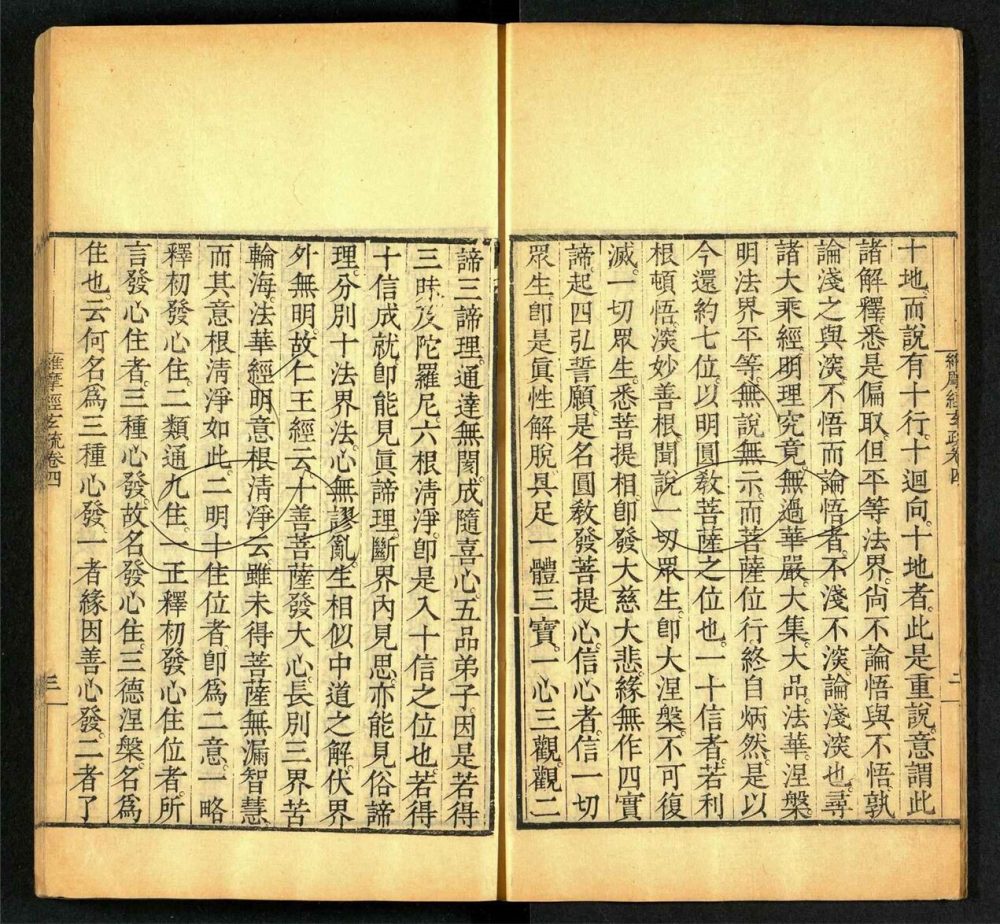 十地。而說有十行。十迴向。十地者。此是重說。意謂此
諸解釋悉是偏取。但平等法界。尙不論悟與不悟。孰
論淺之與㴱。不悟而論悟者。不淺不㴱論淺㴱也。尋
諸大乘經。明理究竟。無過華嚴。大集。大品。法華。涅槃。
明法界平等。無說無示。而菩薩位行終自炳然。是以
今還約七位。以明圓敎菩薩之位也。一十信者。若利
根頓悟。㴱妙善根。聞說一切眾生。卽大涅槃。不可復
滅。一切眾生。悉菩提相。卽發大慈大悲緣無作四實
諦。起四弘誓願。是名圓敎發菩提心。信心者。信一切
眾生。卽是眞性解脫。具足一體三寶。一心三觀。觀二
維摩經玄疏卷四
二
諦三諦理。通達無閡。成隨喜心。五品弟子。因是若得
三昧及陀羅尼。六根淸淨。卽是入十信之位也。若得
十信成就。卽能見眞諦理。斷界內見思。亦能見俗諦
理。分別十法界法。心無謬亂。生相似中道之解。伏界
外無明。故仁王經云。十善菩薩發大心。長別三界苦
輪海。法華經明意根淸淨云。雖未得菩薩無漏智慧。
而其意根淸淨如此。二明十住位者。卽爲二意。一略
釋初發心住。二類通九住。一正釋初發心住位者。所
言發心住者。三種心發。故名發心住。三德涅槃。名爲
住也。云何名爲三種心發。一者緣因善心發。二者了
維摩經玄疏卷四
三